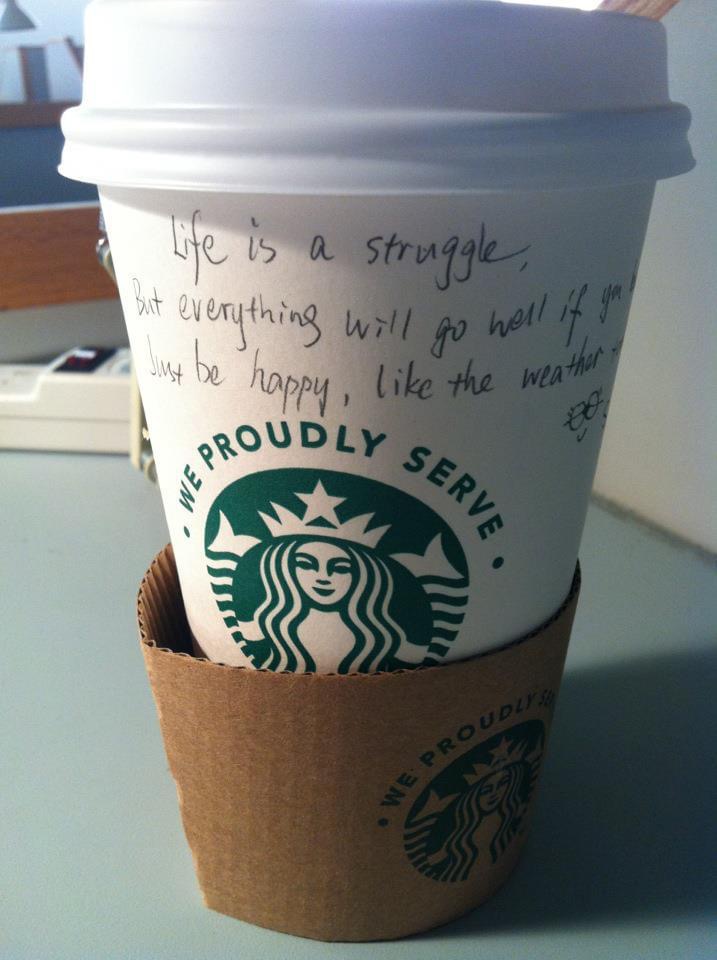 Life is a struggle,
But everything will go well if you
Just be happy, like the weather
• WE PROUDLY SERVE •
• WE PROUDLY